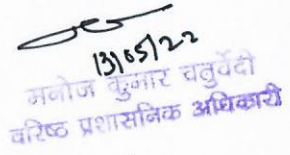 13/05/22
मनोज कुमार चतुर्वेदी
वरिष्ठ प्रशासनिक अधिकारी